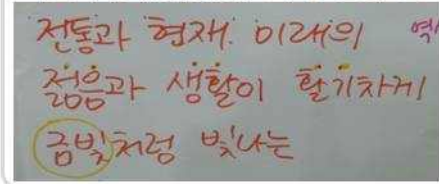 전통과 현재. 미래의 역
젊음과 생활이 활기차게
금빛처럼 빛나는